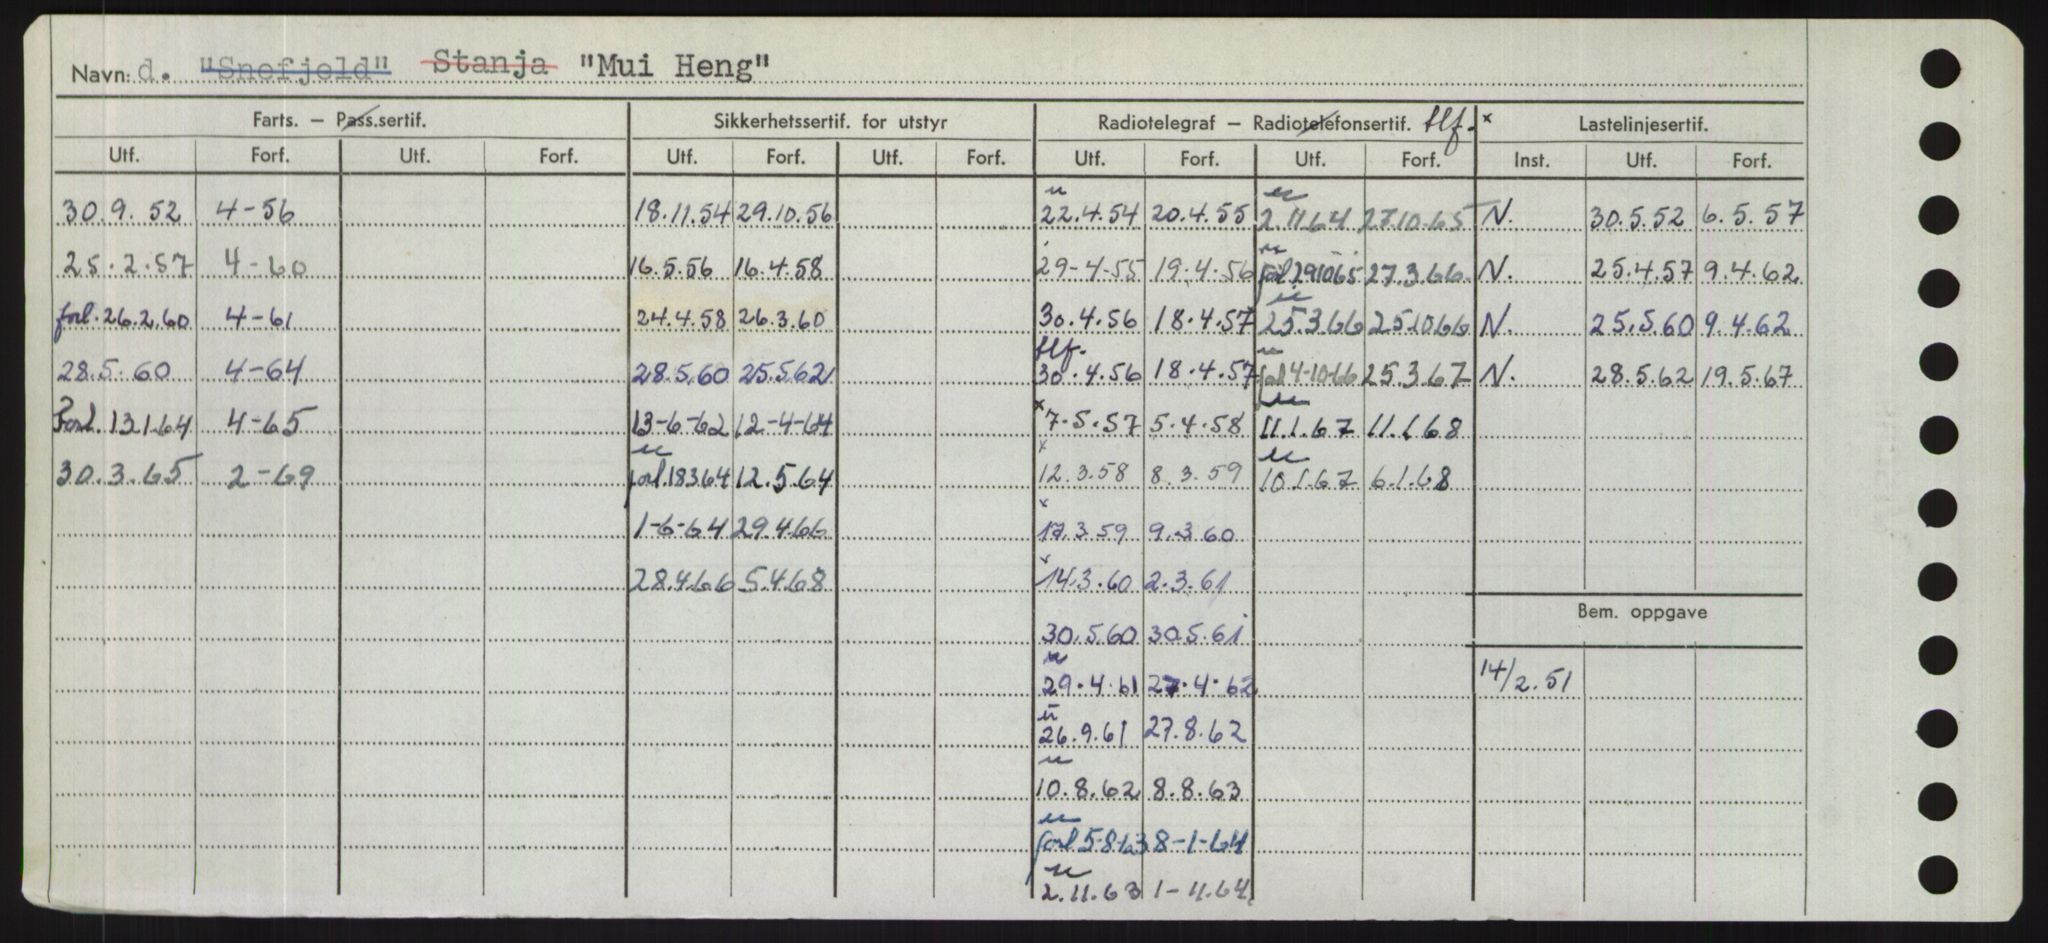 Navn: d. "Snefjeld" Stanja "Mui Heng"
Farts. — Pass.sertif. Sikkerhetssertif. for utstyr Radiotelegraf — Radiotelefonsertif. tlf. x Lastelinjesertif.
Utf. Forf. Utf. Forf. Utf. Forf. Utf. Forf. Utf. Forf. Utf. Forf. Inst. Utf. Forf.
30.9.52 4-56 18.11.54 29.10.56 22.4.54 20.4.55 2.11.64 27.10.65 N. 30.5.52 6.5.57
25.2.57 4-60 16.5.56 16.4.58 29-4-55 19.4.56 forl 29.10.65 27.3.66 N. 25.4.57 9.4.62
forl. 26.2.60 4-61 24.4.58 26.3.60 30.4.56 18.4.57 25.3.66 25.10.66 N. 25.5.60 9.4.62
tlf.
28.5.60 4-64 28.5.60 25.5.62 30.4.56 18.4.57 forl 4-10-66 25.3.67 N. 28.5.62 19.5.67
Forl. 13.1.64 4-65 13-6-62 12-4-64 x 7-5.57 5.4.58 11.1.67 11.1.68
30.3.65 2-69 forl. 18.3.64 12.5.64 x 12.3.58 8.3.59 10.1.67 6.1.68
1-6-64 29.4.66 x 12.3.59 9.3.60
28.4.66 5.4.68 x 14.3.60 2.3.61
Bem. oppgave
30.5.60 30.5.61
14/2.51
29.4.61 27.4.62
26.9.61 27.8.62
10.8.62 8.8.63
forl 5-8-63 8-1-64
2.11.63 1-11.64